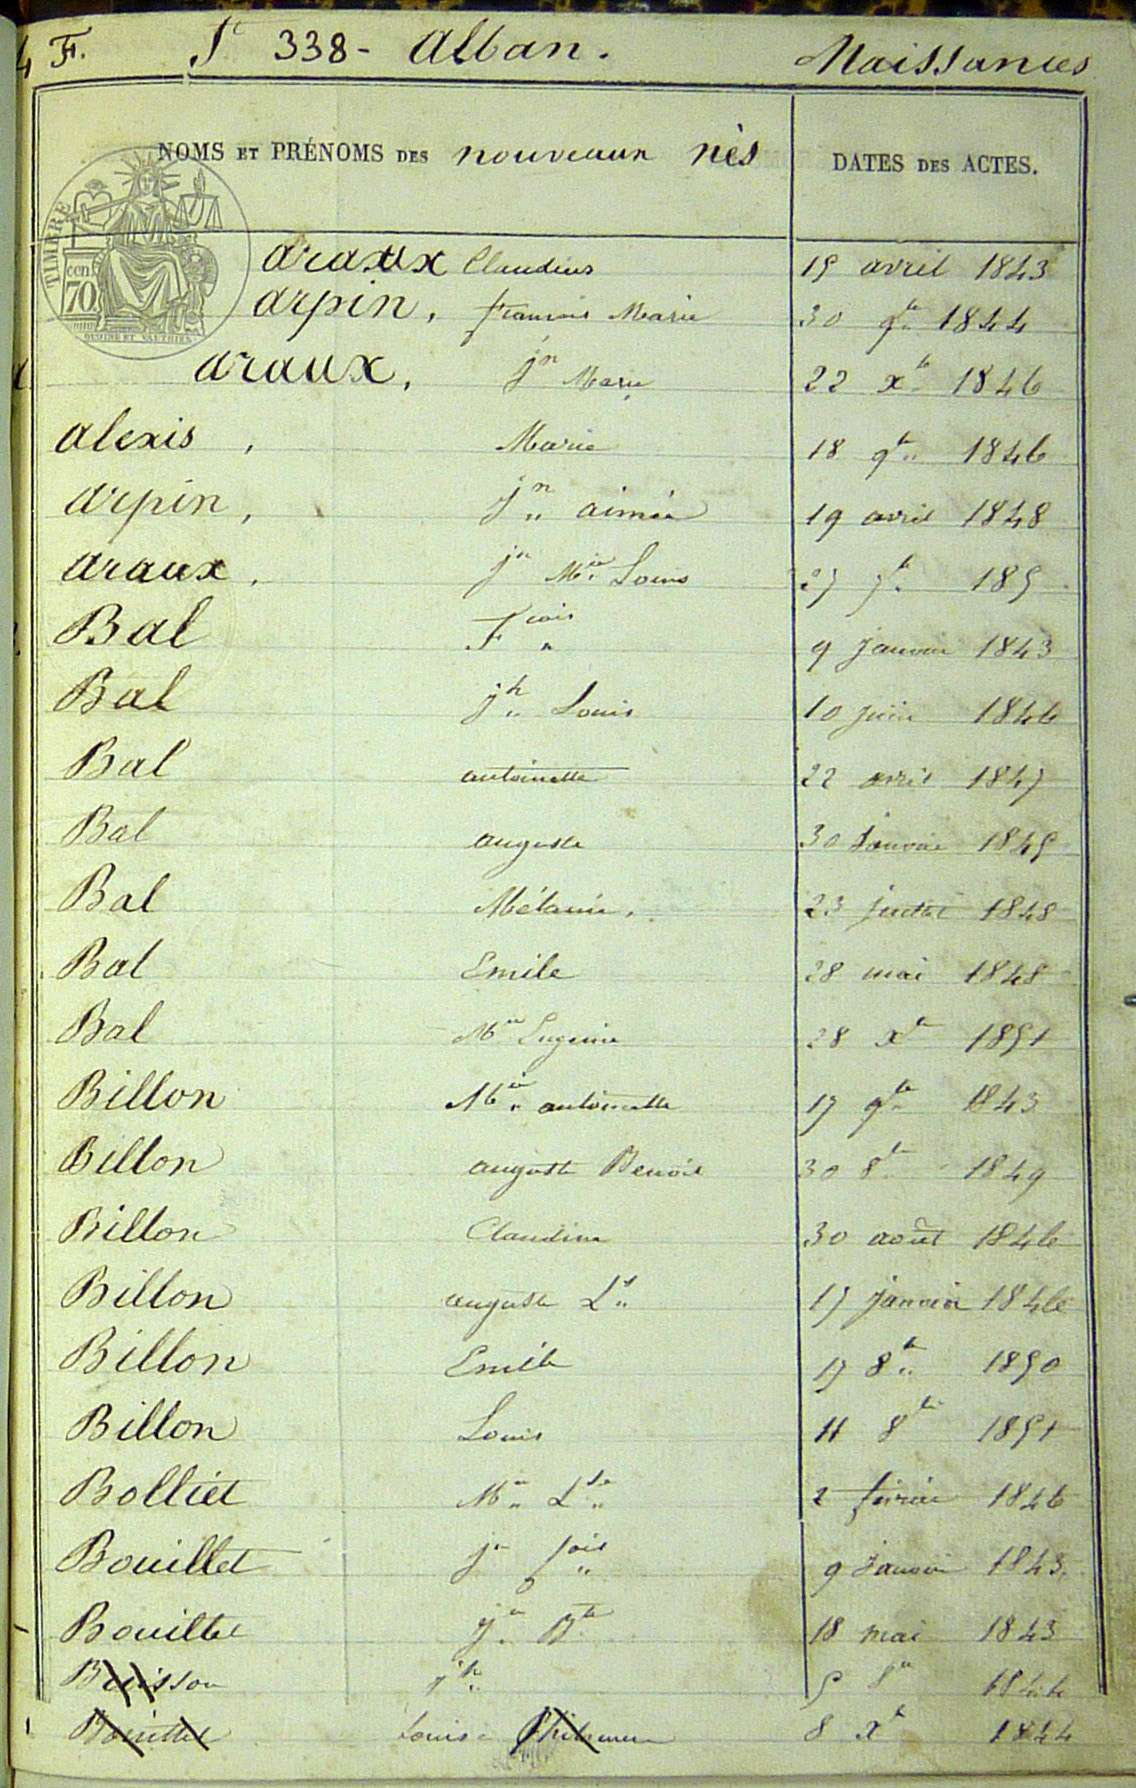 4 F. St 338 - Alban. Naissances
NOMS ET PRÉNOMS DES nouveaux nés DATES DES ACTES.
TIMBRE
cen. 70
araux Claudius 15 avril 1843
arpin, francois Marie 30 9bre 1844
araux, jn Marie 22 xbre 1846
alexis, Marie 18 9bre 1846
arpin, jn aimée 19 avril 1848
araux, jn Mie Louis 27 7bre 185
Bal Fcois 9 janvier 1843
Bal jh Louis 10 juin 1846
Bal antoinette 22 avril 1847
Bal auguste 30 Janvier 1845
Bal Mélanie. 23 juillet 1848
Bal Emile 28 mai 1848
Bal Mie Eugenie 28 xbre 1851
Billon Mie antoinette 17 9bre 1843
Billon auguste Benoit 30 8bre 1849
Billon Claudine 30 août 1846
Billon auguste Ls 17 janvier 1846
Billon Emile 17 8bre 1850
Billon Louis 11 8bre 1851
Bolliet Mie Lse 2 fevrier 1846
Bouillet jn fois 9 Janvier 1843
Bouillet jn Bte 18 mai 1843
Buisson jh 5 8bre 1844
Bouillet Louise Philomene 8 xbre 1844